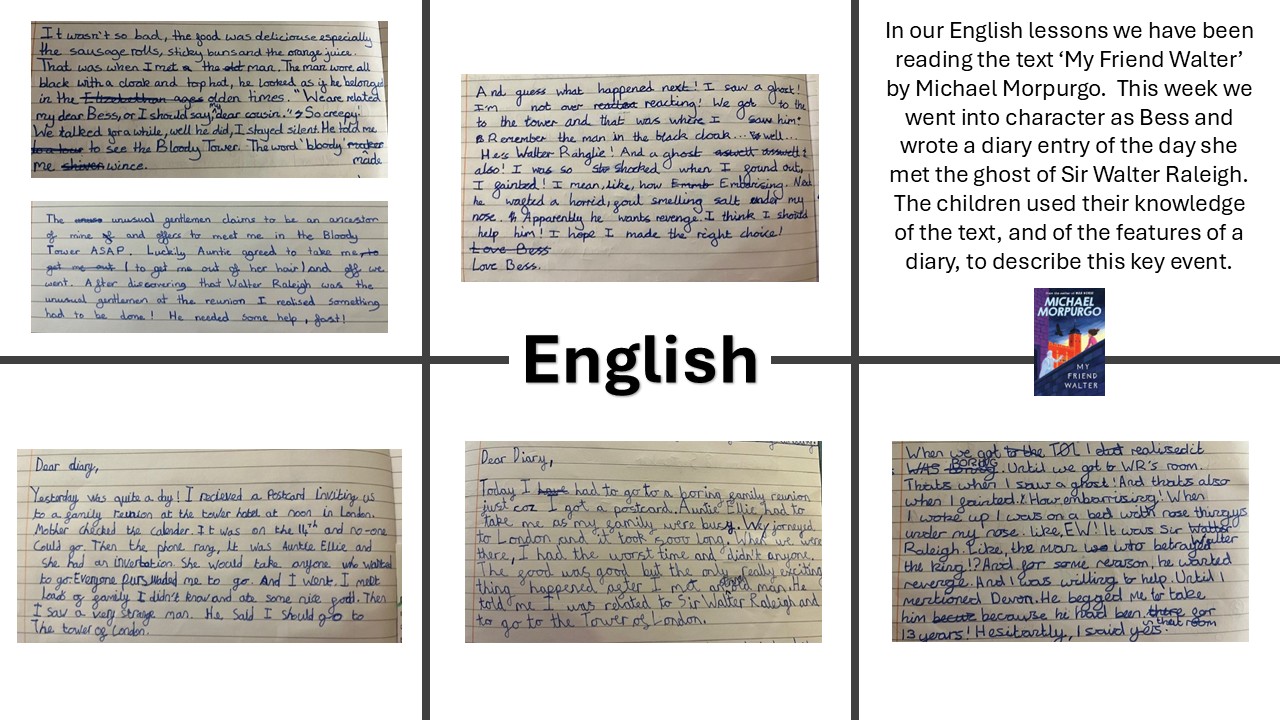 It wasn't so bad, the food was deliciouse especially
the sausage rolls, sticky buns and the orange juice.
That was when I met a the old man. The man wore all
black with a cloak and top hat, he looked as if he belonged
in the Elizabethan ages olden times. "We are related
my dear Bess, or I should say, my "dear cousin." So creepy.
We talked for a while, well he did, I stayed silent. He told me
to see the Bloody Tower. The word 'bloody' maker made
me shiver wince.
The unusual gentlemen claims to be an ancestor
of mine of and offers to meet me in the Bloody
Tower ASAP. Luckily Auntie agreed to take me, to
get me out (to get me out of her hair) and off we
went. After discovering that Walter Raleigh was the
unusual gentlemen at the reunion I realised something
had to be done! He needed some help, fast!
And guess what happened next! I saw a ghost!
I'm not over reacting! We got to the
to the tower and that was where I saw him!
Remember the man in the black cloak... well...
He's Walter Rahglie! And a ghost aswell aswell!
also! I was so sho shocked when I found out,
I fainted! I mean, like, how Emmb Embarising. Next
he wafted a horrid, foul smelling salt under my
nose. Apparently he wants revenge. I think I should
help him! I hope I made the right choice!
Love Bess
Love Bess.
In our English lessons we have been
reading the text ‘My Friend Walter’
by Michael Morpurgo. This week we
went into character as Bess and
wrote a diary entry of the day she
met the ghost of Sir Walter Raleigh.
The children used their knowledge
of the text, and of the features of a
diary, to describe this key event.
MICHAEL
MORPURGO
MY
FRIEND
WALTER
English
Dear diary,
Yesterday was quite a day! I recieved a Postcard inviting us
to a family reunion at the tower hotel at noon in London.
Mother checked the calander. It was on the 14th and no-one
Could go. Then the phone rang, It was Auntie Ellie and
she had an invertation. She would take anyone who wanted
to go. Everyone purswaded me to go. And I went. I meet
loads of family I didn't know and ate some nice food. Then
I saw a very strange man. He Said I should go to
The tower of London.
Dear Diary,
Today I have had to go to a boring family reunion
just coz I got a postcard. Auntie Ellie had to
take me as my family were busy. We journeyed
to London and it took sooo long. When we were
there, I had the worst time and didn't anyone.
The food was good but the only really exciting
thing happened after I met an old man. He
told me I was related to Sir Walter Raleigh and
to go to the Tower of London.
When we got to the TOL I dut realised it
WAS boring BORING. Until we got to WR's room.
Thats when I saw a ghost! And thats also
when I fainted! How embarrising! When
I woke up I was on a bed with nose thingys
under my nose. Like, EW! It was Sir Walter Walter
Raleigh. Like, the man who betrayed
the king!? And for some reason, he wanted
revenge. And I was willing to help. Until I
mentioned Devon. He begged me to take
him because he had been there for in that room
13 years! Hesitartly, I said yes.